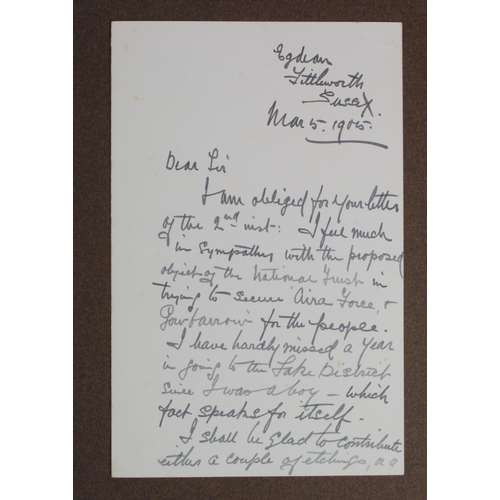 Egdean
Fittleworth
Sussex.
Mar 5. 1905.
Dear Sir
I am obliged for your letter
of the 2nd inst: I feel much
in sympathy with the proposed
object of the National Trust in
trying to secure Aira Force, &
Gowbarrow for the people.
I have hardly missed a year
in going to the Lake District
since I was a boy – which
fact speaks for itself.
I shall be glad to contribute
either a couple of etchings, or a